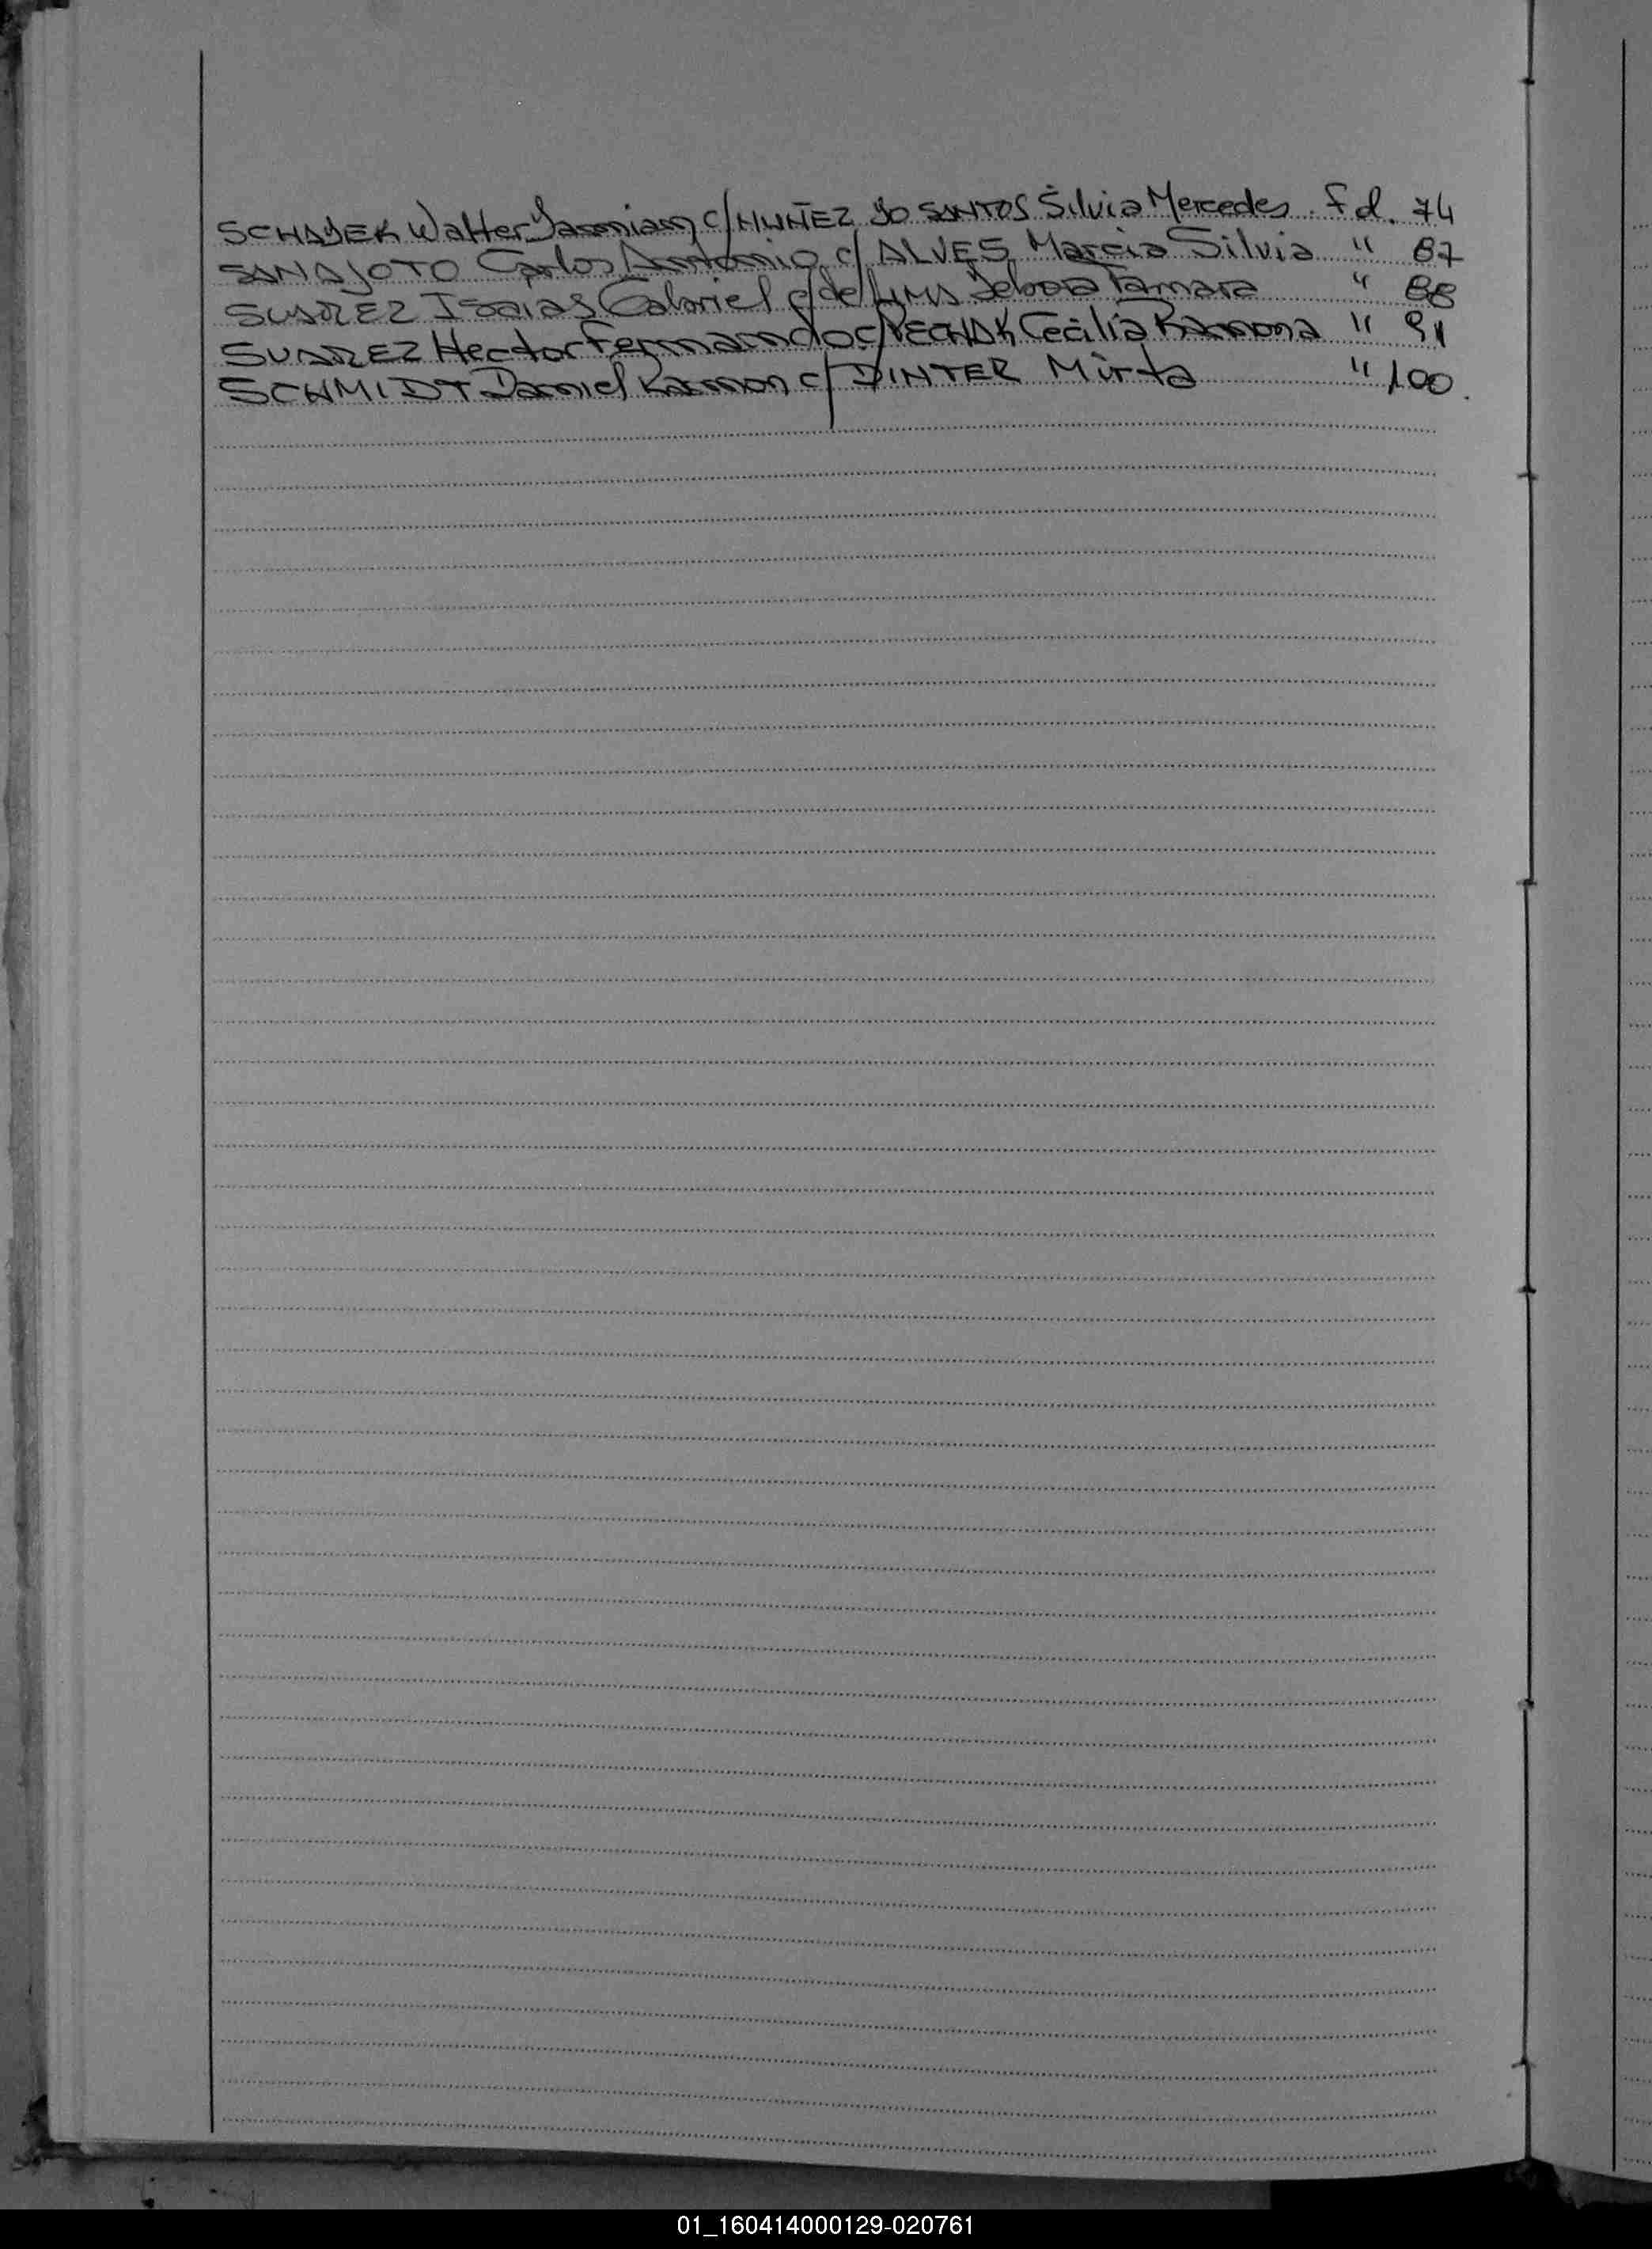 SCHAJEK Walter c/ NUÑEZ DO SANTOS Silvia Mercedes. Fol. 74
SANAJOTO Carlos Antonio c/ ALVES Marcia Silvia " 87
SUAREZ Isaias Gabriel c/ de LIMA Debora Tamara " 88
SUAREZ Hector Fernando c/ PECHAK Cecilia Ramona " 91
SCHMIDT Daniel Ramon c/ DINTER Mirta " 100.
01_160414000129-020761